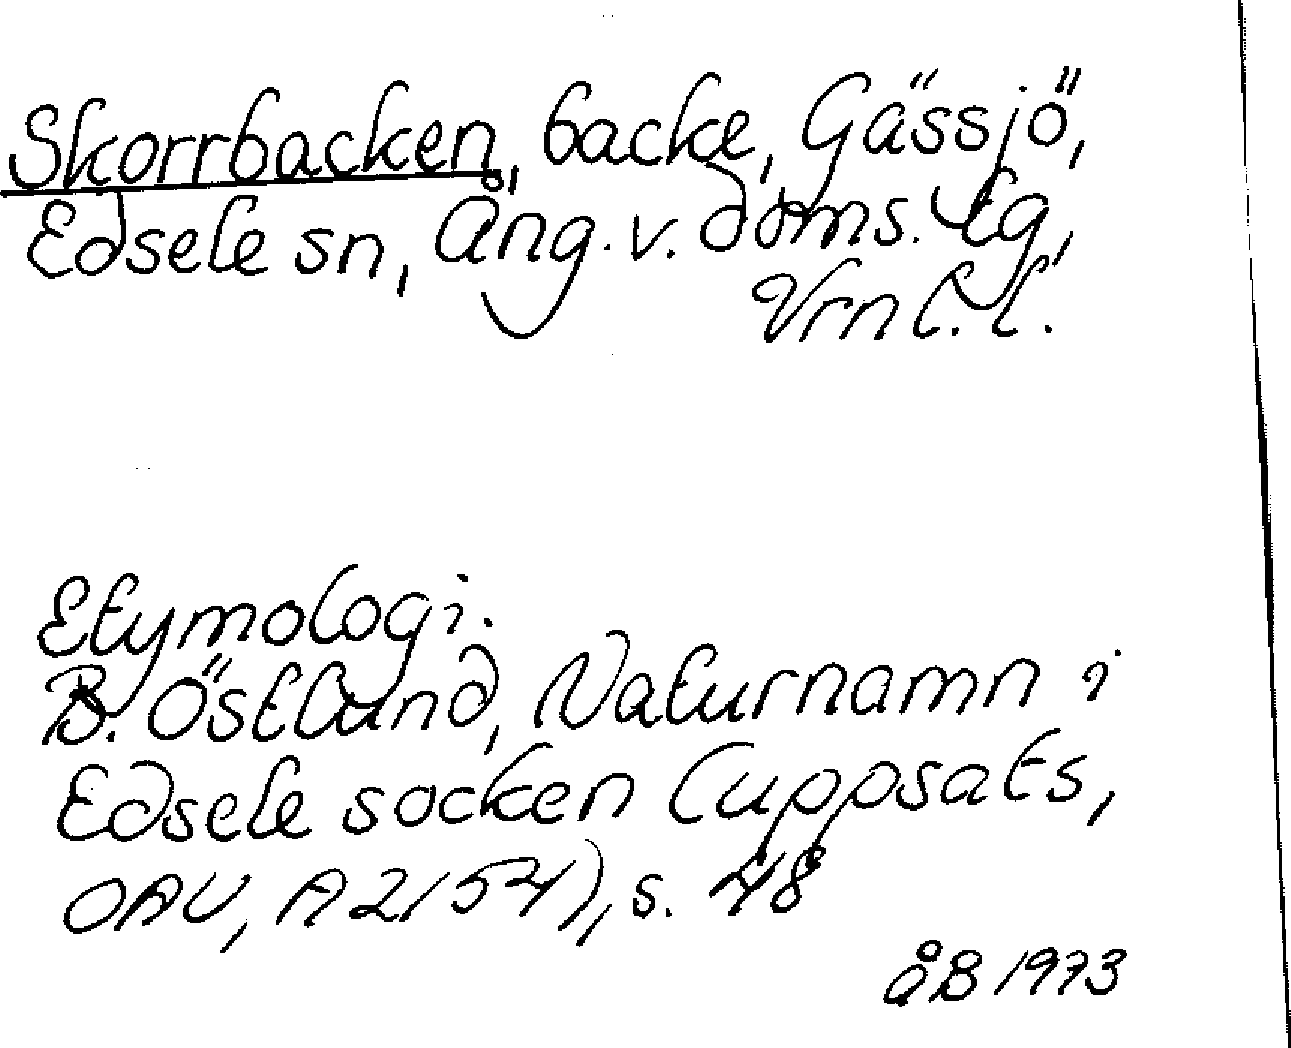 Skorrbacken, backe, Gässjö,
Edsele sn, Ång. v. doms. tg,
Vrnl. l.
Etymologi.
B. Östlund, Naturnamn i
Edsele socken (uppsats,
OAU, A 2154), s. 48
ÅB 1973